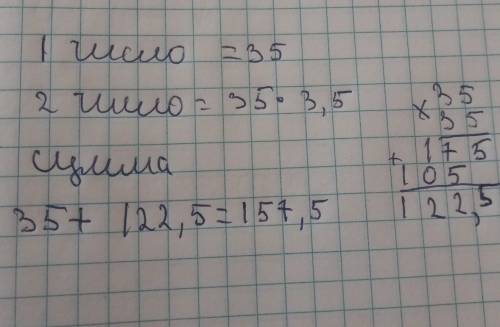 1 число = 35
2 число = 35 · 3,5
сумма
35 + 122,5 = 157,5
35
× 35
175
+ 105
122,5